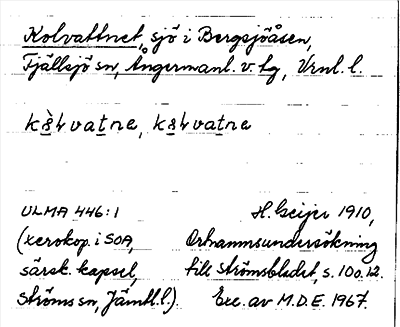 Kolvattnet, sjö i Bergsjöåsen,
Fjällsjö sn, Ångermanl. v. tg, Vrnl. l.
k8̀ɬvatne, k8ɬvatne
ULMA 446:1 H. Geijer 1910,
(xerokop. i SOA, Ortnamnsundersökning
särsk. kapsel, till Strömsbladet, s. 100.12.
Ströms sn, Jämtl. l.). Exc. av M.D.E. 1967.